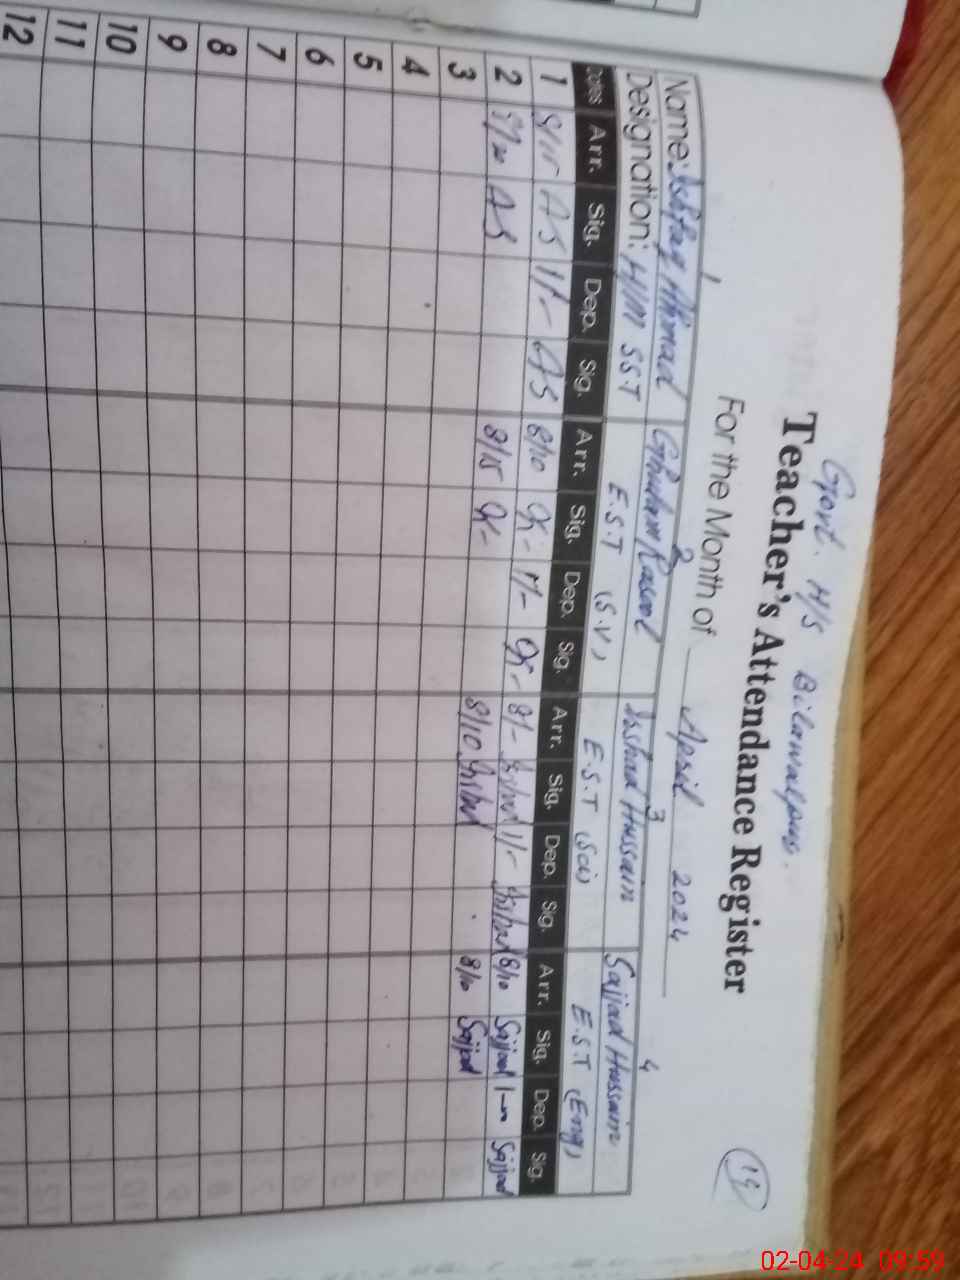 Govt. H/S Bilawalpur.
Teacher's Attendance Register
19
For the Month of April 2024
1 2 3 4
Name: Ishfaq Ahmad Ghulam Rasool Irshad Hussain Sajjad Hussain
Designation: H/M SST E.S.T (S.V) E.S.T (Sci) E.S.T (Eng)
Dates Arr. Sig. Dep. Sig. Arr. Sig. Dep. Sig. Arr. Sig. Dep. Sig. Arr. Sig. Dep. Sig.
1 8/15 AS 1/- AS 8/10 1/- 8/- Irshad 1/- Irshad 8/10 Sajjad Sajjad
2 AS 8/15 8/10 Irshad 8/10 Sajjad
3
4
5
6
7
8
9
10
11
12
02-04-24 09:59